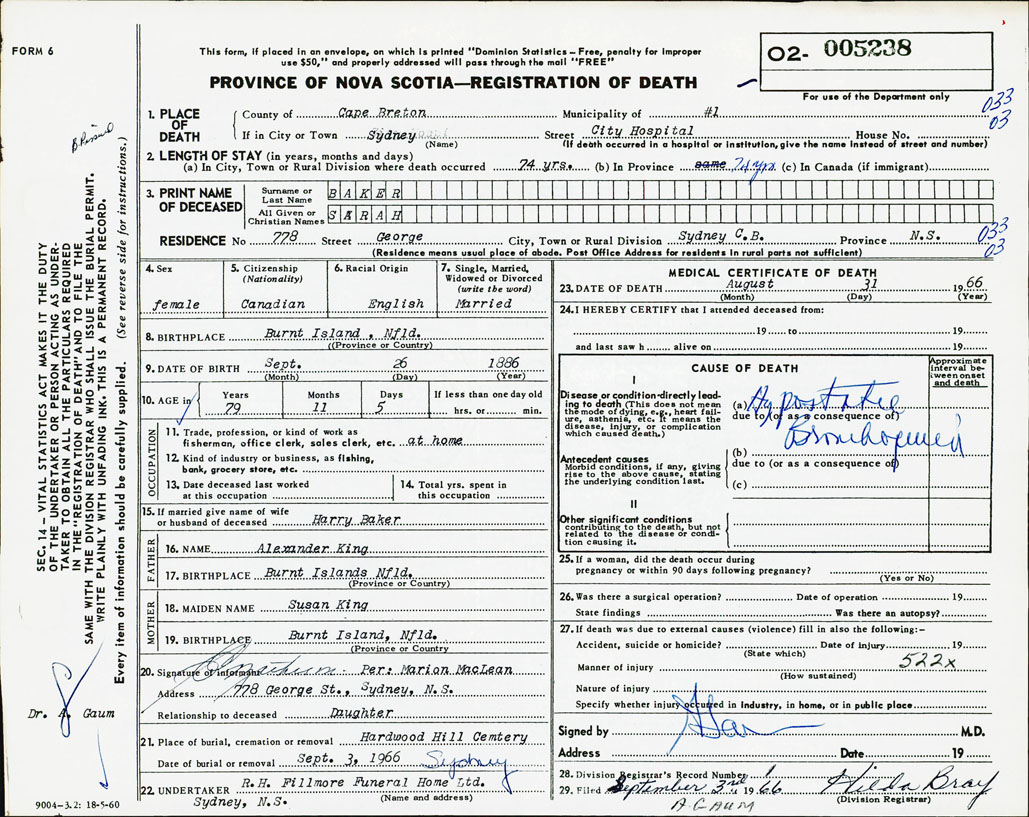 FORM 6
This form, if placed in an envelope, on which is printed "Dominion Statistics – Free, penalty for improper
use $50," and properly addressed will pass through the mail "FREE"
PROVINCE OF NOVA SCOTIA—REGISTRATION OF DEATH
02- 005238
For use of the Department only
033
03
1. PLACE OF DEATH
County of Cape Breton Municipality of #1
If in City or Town Sydney Street City Hospital House No.
(Name) (If death occurred in a hospital or institution, give the name instead of street and number)
2. LENGTH OF STAY (in years, months and days)
(a) In City, Town or Rural Division where death occurred 74 yrs. (b) In Province same 74 yrs. (c) In Canada (if immigrant)
3. PRINT NAME OF DECEASED
Surname or Last Name BAKER
All Given or Christian Names SARAH
RESIDENCE No 778 Street George City, Town or Rural Division Sydney C.B. Province N.S.
033
03
(Residence means usual place of abode. Post Office Address for residents in rural parts not sufficient)
4. Sex
female
5. Citizenship
(Nationality)
Canadian
6. Racial Origin
English
7. Single, Married,
Widowed or Divorced
(write the word)
Married
8. BIRTHPLACE Burnt Island, Nfld.
((Province or Country)
9. DATE OF BIRTH Sept. 26 1886
(Month) (Day) (Year)
10. AGE in
Years Months Days If less than one day old
79 11 5 hrs. or min.
OCCUPATION
11. Trade, profession, or kind of work as
fisherman, office clerk, sales clerk, etc. at home
12. Kind of industry or business, as fishing,
bank, grocery store, etc.
13. Date deceased last worked
at this occupation
14. Total yrs. spent in
this occupation
15. If married give name of wife
or husband of deceased Harry Baker
FATHER
16. NAME Alexander King
17. BIRTHPLACE Burnt Islands Nfld.
(Province or Country)
MOTHER
18. MAIDEN NAME Susan King
19. BIRTHPLACE Burnt Island, Nfld.
(Province or Country)
20. Signature of informant Per: Marion MacLean
Address 778 George St., Sydney, N.S.
Relationship to deceased Daughter
21. Place of burial, cremation or removal Hardwood Hill Cemtery
Date of burial or removal Sept. 3, 1966 Sydney
22. UNDERTAKER R.H. Fillmore Funeral Home Ltd.
Sydney, N.S. (Name and address)
MEDICAL CERTIFICATE OF DEATH
23. DATE OF DEATH August 31 1966
(Month) (Day) (Year)
24. I HEREBY CERTIFY that I attended deceased from:
19 to 19
and last saw h alive on 19
CAUSE OF DEATH
Approximate
interval be-
tween onset
and death
I
Disease or condition directly lead-
ing to death (This does not mean
the mode of dying, e.g., heart fail-
ure, asthenia, etc. It means the
disease, injury, or complication
which caused death.)
(a) Hypostatic
due to (or as a consequence of)
(b)
due to (or as a consequence of)
(c)
Antecedent causes
Morbid conditions, if any, giving
rise to the above cause, stating
the underlying condition last.
II
Other significant conditions
contributing to the death, but not
related to the disease or condi-
tion causing it.
25. If a woman, did the death occur during
pregnancy or within 90 days following pregnancy?
(Yes or No)
26. Was there a surgical operation? Date of operation 19
State findings Was there an autopsy?
27. If death was due to external causes (violence) fill in also the following:–
Accident, suicide or homicide? Date of injury 19
(State which)
Manner of injury 522x
(How sustained)
Nature of injury
Specify whether injury occurred in industry, in home, or in public place
Signed by M.D.
Address Date 19
28. Division Registrar's Record Number 1
29. Filed September 3rd 1966 Hilda Bray
(Division Registrar)
A. GAUM
SEC. 14 – VITAL STATISTICS ACT MAKES IT THE DUTY
OF THE UNDERTAKER OR PERSON ACTING AS UNDER-
TAKER TO OBTAIN ALL THE PARTICULARS REQUIRED
IN THE "REGISTRATION OF DEATH" AND TO FILE THE
SAME WITH THE DIVISION REGISTRAR WHO SHALL ISSUE THE BURIAL PERMIT.
WRITE PLAINLY WITH UNFADING INK. THIS IS A PERMANENT RECORD.
Every item of information should be carefully supplied. (See reverse side for instructions.)
Dr. A. Gaum
9004-3.2: 18-5-60